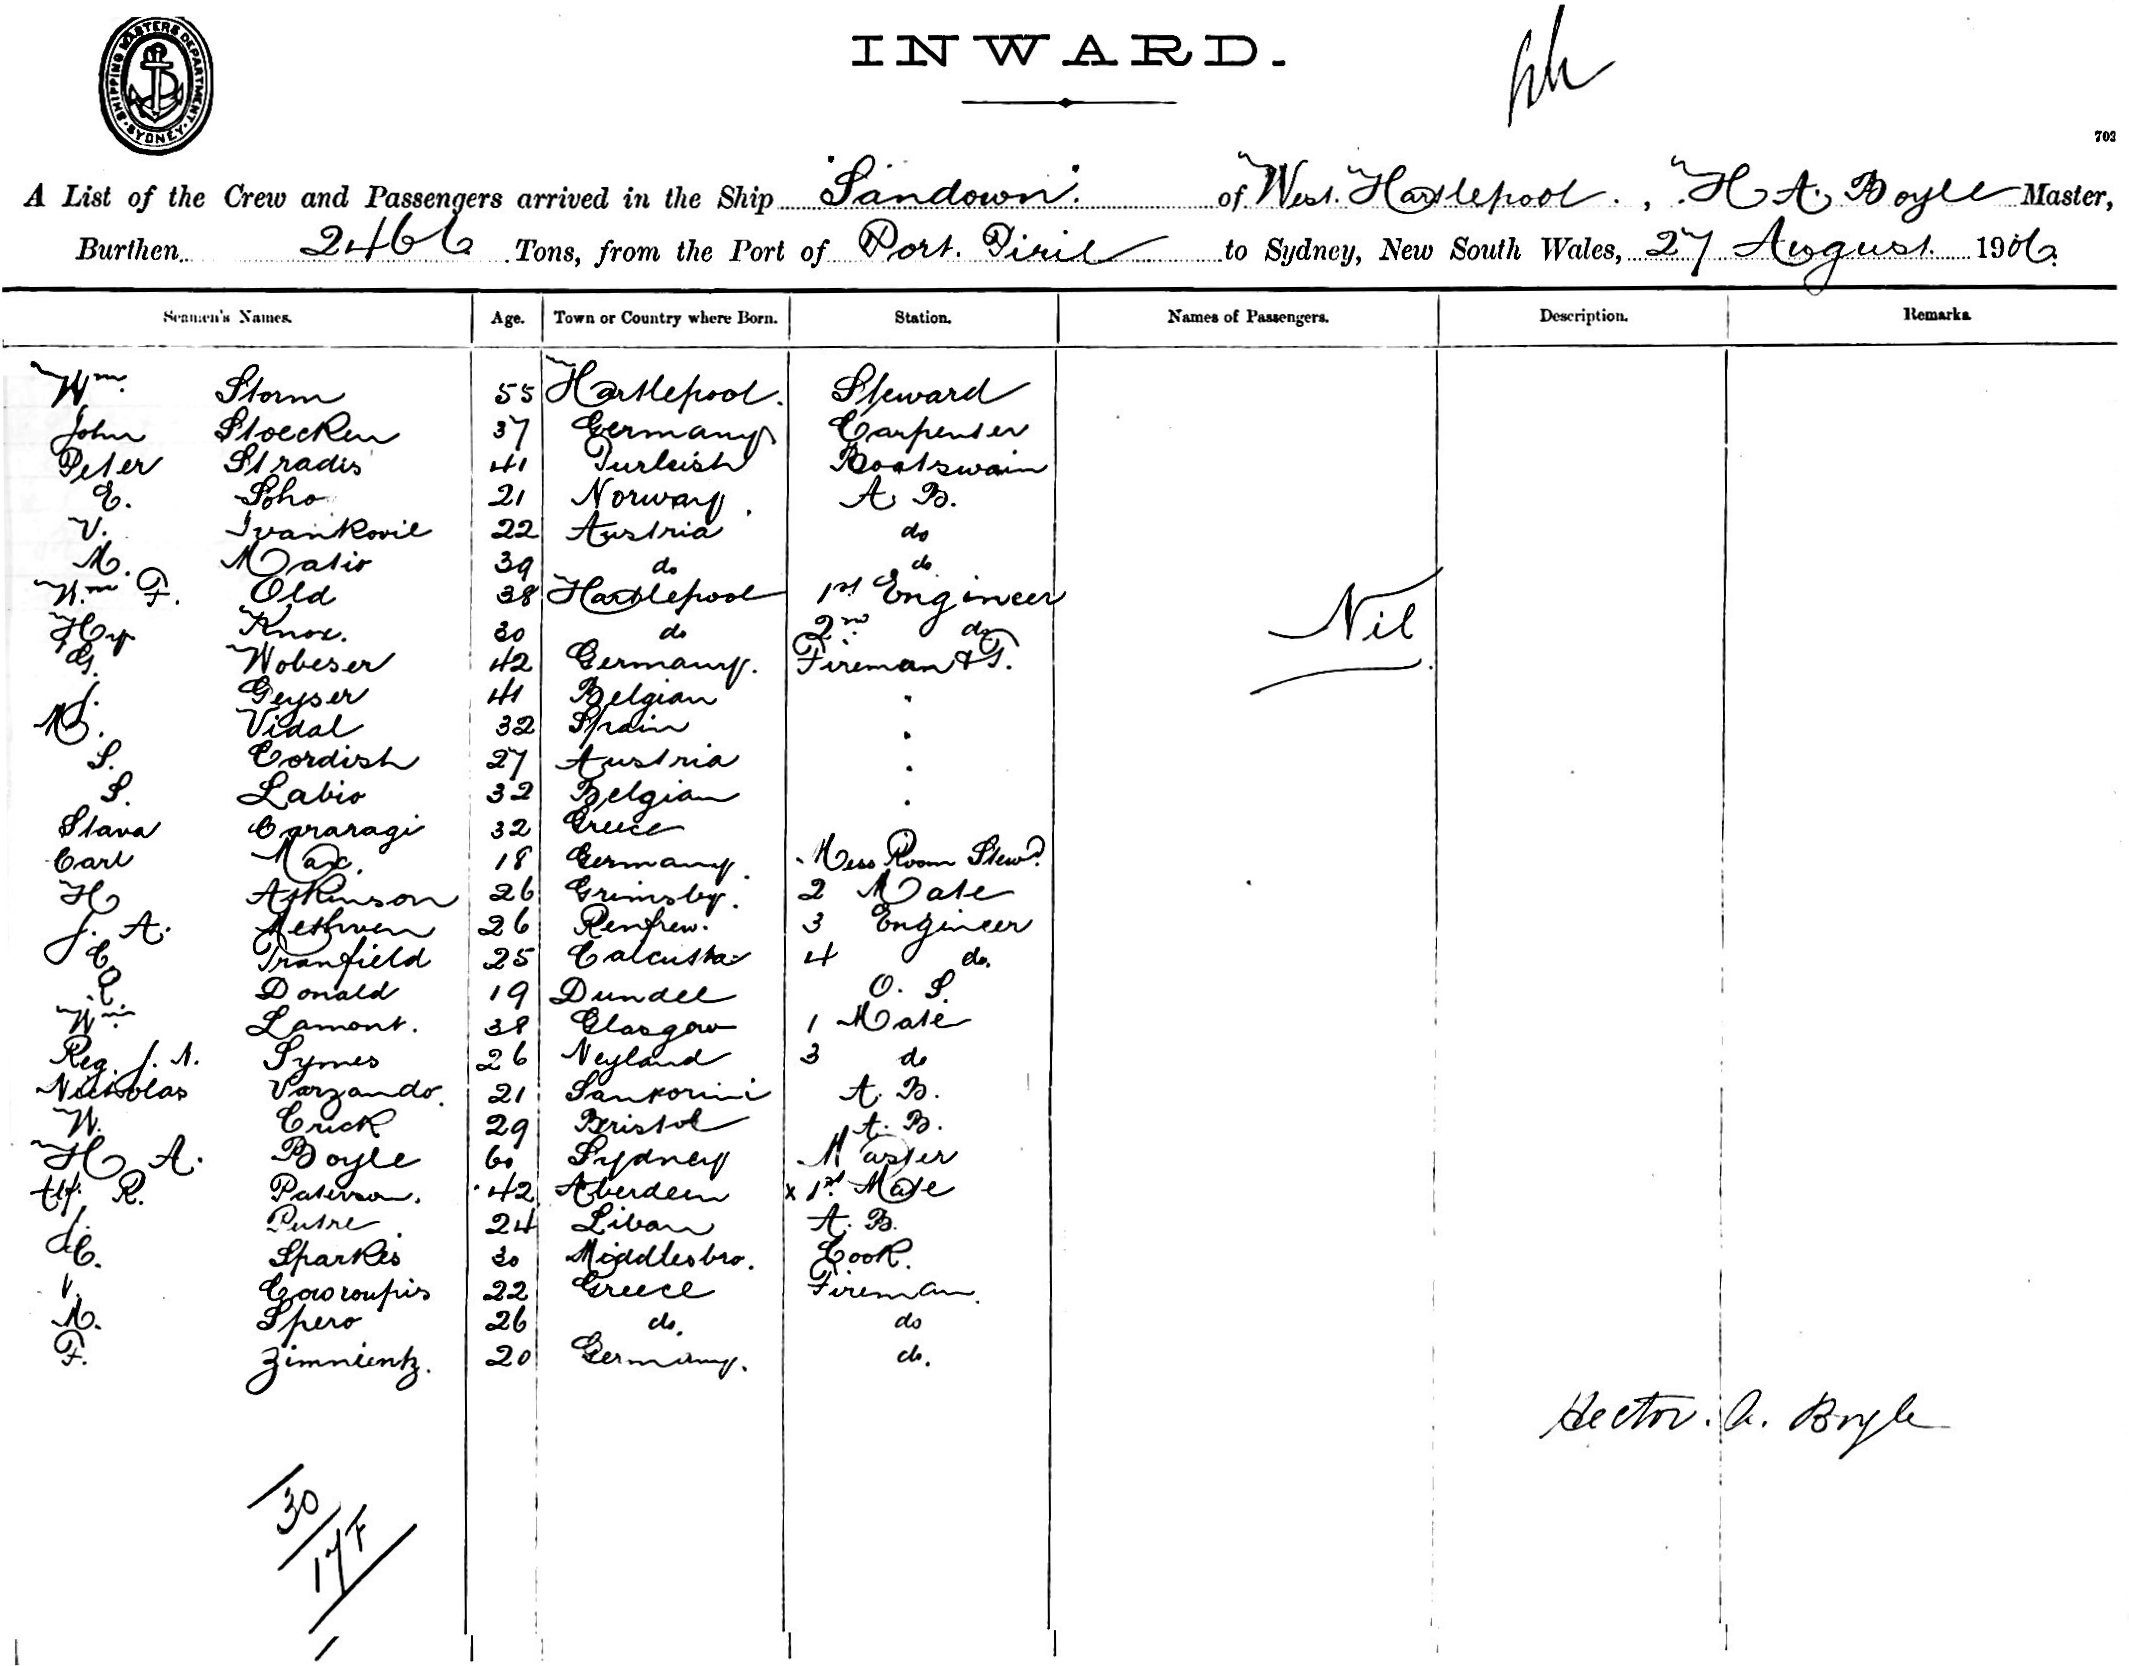 SHIPPING MASTERS DEPARTMENT
SYDNEY
INWARD.
702
A List of the Crew and Passengers arrived in the Ship "Sandown" of West Hartlepool, H A. Boyle Master,
Burthen 2466 Tons, from the Port of Port Pirie to Sydney, New South Wales, 27 August 1906.
Seamen's Names. Age. Town or Country where Born. Station. Names of Passengers. Description. Remarks
Wm. Storm 55 Hartlepool. Steward
John Stoecken 37 Germany Carpenter
Peter Stradis 41 Turkish Boatswain
E. Soho 21 Norway. A. B.
V. Ivankovic 22 Austria do
M. Matio 39 do do
Wm F. Old 38 Hartlepool 1st Engineer
Hy Knox. 30 do 2nd do
Nil
G. Wobeser 42 Germany. Fireman & T.
J. Geyser 41 Belgian "
M. Vidal 32 Spain "
S. Cordish 27 Austria "
S. Labio 32 Belgian "
Stava Cararagi 32 Greece
Carl Max. 18 Germany. Mess Room Stewd.
H Atkinson 26 Grimsby. 2 Mate
J. A. Methven 26 Renfrew. 3 Engineer
C. Tranfield 25 Calcutta 4 do.
R Donald 19 Dundee O. S.
Wm. Lamont. 38 Glasgow 1 Mate
Reg. J. N. Symes 26 Neyland 3 do
Nicholas Varzando. 21 Santorini A. B.
W. Crick 29 Bristol A. B.
H A. Boyle 60 Sydney Master
Alf. R. Paterson. 42 Aberdeen x 1st Mate
J. Putre 24 Libau A. B.
C. Sparkes 30 Middlesbro. Cook.
V. 22 Greece Fireman.
M. Spero 26 do. do
F. Zimnientz. 20 Germany. do.
Hector. A. Boyle
30
17F